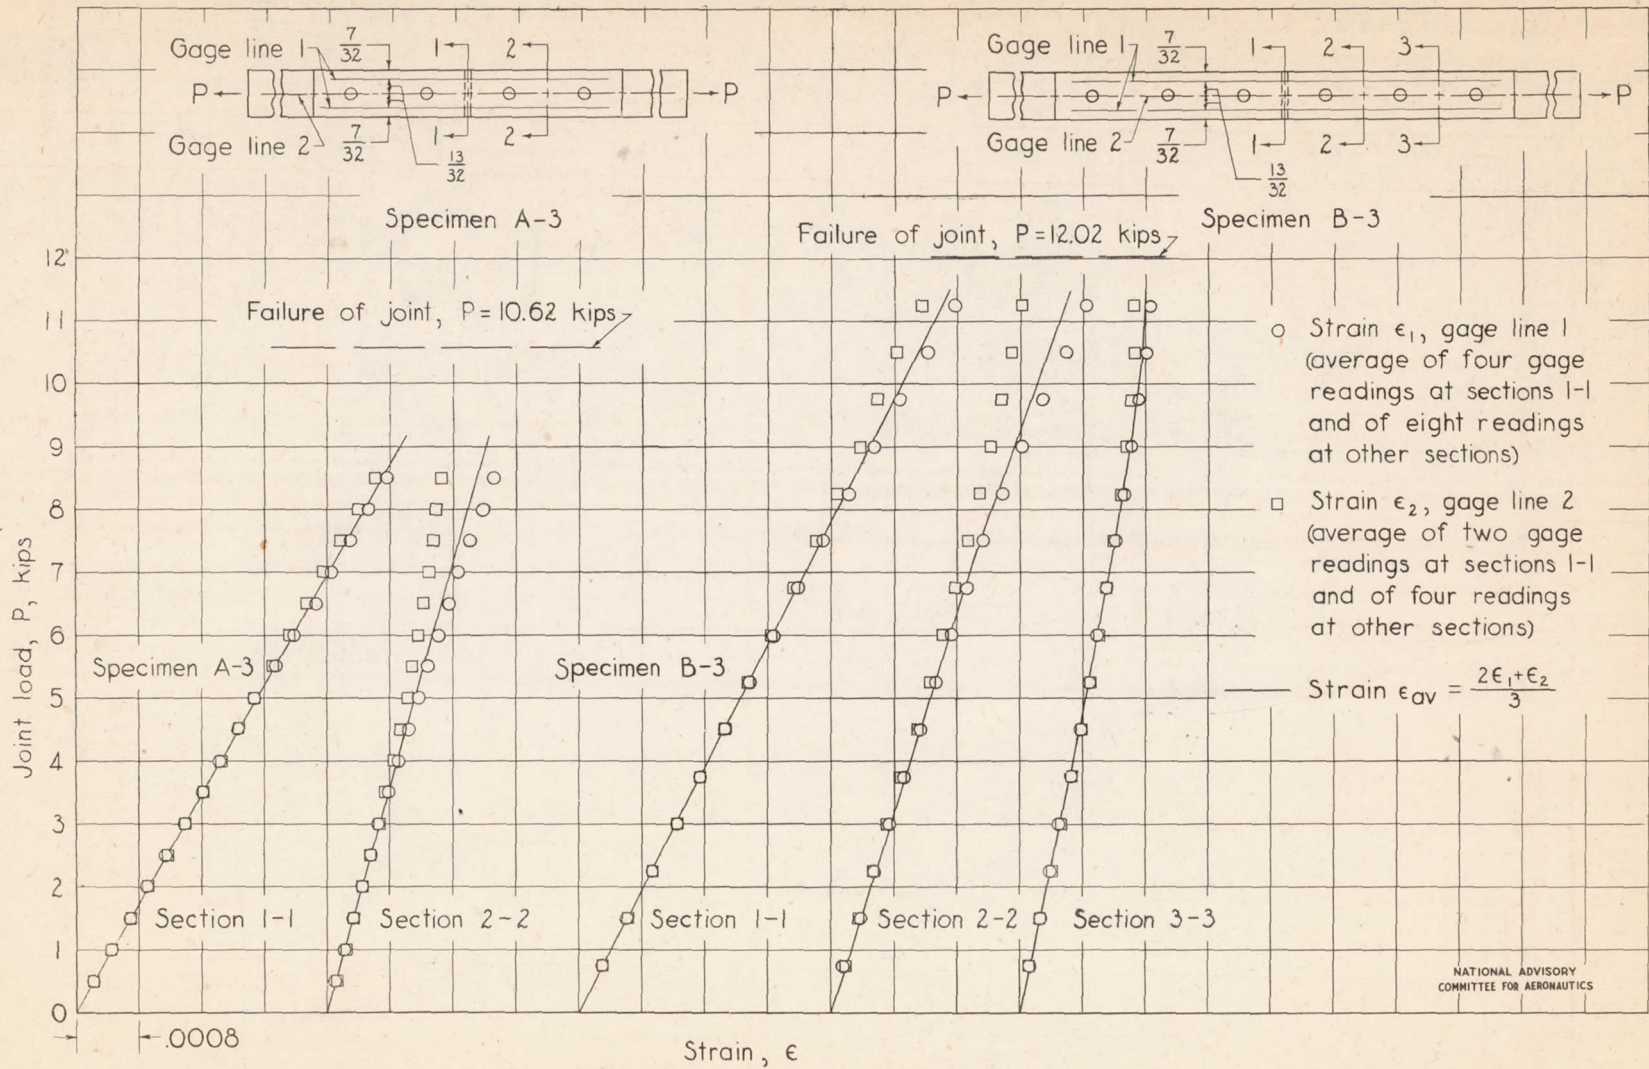 Gage line 1
7/32
1
2
P
P
Gage line 2
7/32
1
2
13/32
Specimen A-3
Gage line 1
7/32
1
2
3
P
P
Gage line 2
7/32
1
2
3
13/32
Specimen B-3
Failure of joint, P=12.02 kips
Failure of joint, P=10.62 kips
○ Strain ϵ₁, gage line 1
(average of four gage
readings at sections 1-1
and of eight readings
at other sections)
□ Strain ϵ₂, gage line 2
(average of two gage
readings at sections 1-1
and of four readings
at other sections)
Strain ϵav = 2ϵ₁+ϵ₂/3
Joint load, P, kips
12
11
10
9
8
7
6
5
4
3
2
1
0
Specimen A-3
Specimen B-3
Section 1-1
Section 2-2
Section 1-1
Section 2-2
Section 3-3
NATIONAL ADVISORY
COMMITTEE FOR AERONAUTICS
.0008
Strain, ϵ